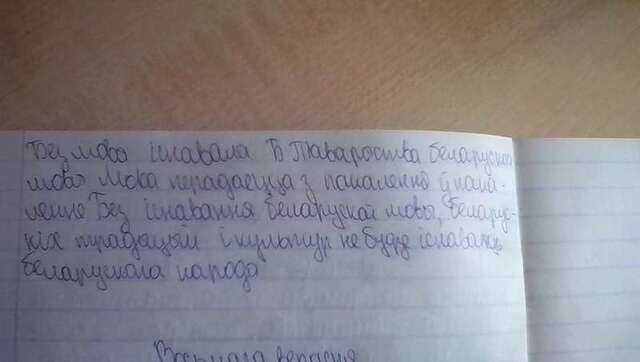 Без мово існавала Б Таварства беларускай
мово Мова перадаецца з пакаленне ў пака-
ленне Без існавання беларускай мовы, беларус-
кіх традыцый і культур не будзе існаваць
беларускага народа
Восьмага верасня